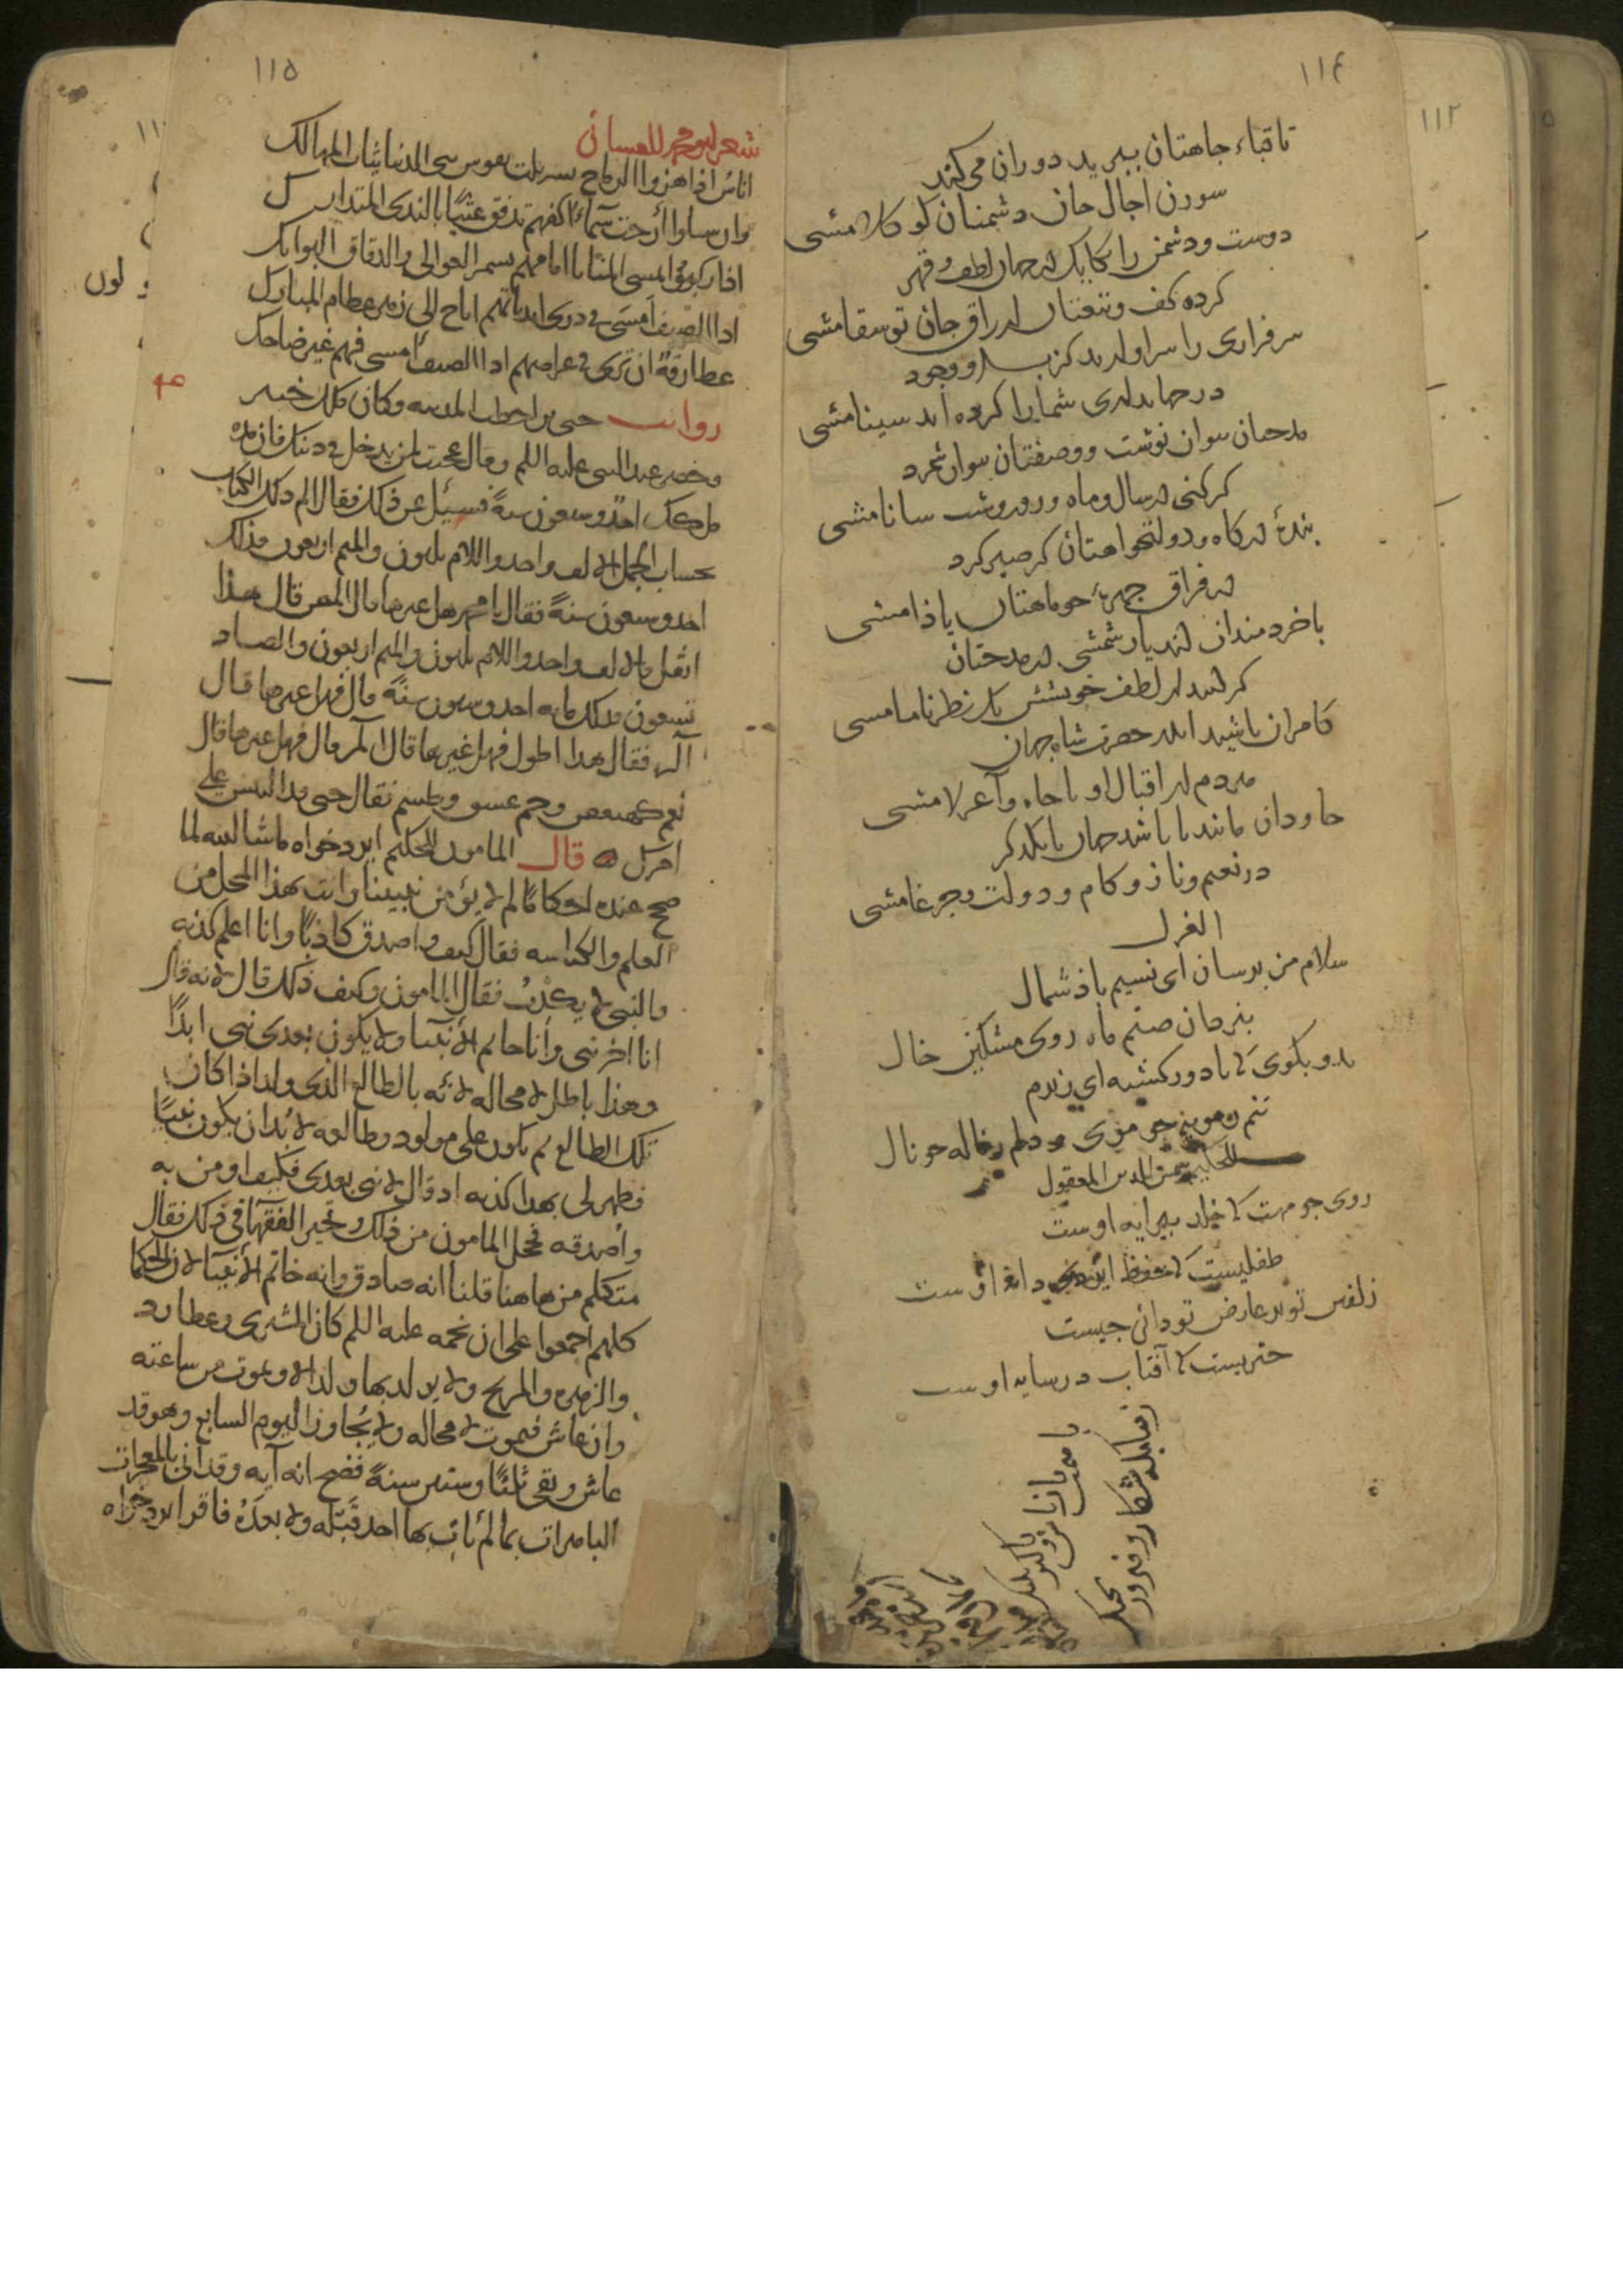 ١١٤
تا قباء جاهتان ببرید دوران می کند
سوزن اجال جان دشمنان کوکلامشی
دوست ودشمن را یکایک در جهان لطف و قهر
کرده کف و تیغتان جان توسقامشی
سرفرازی را سزاوارید کز وجود
در جهانداری شمارا کرده اند سینامشی
مدحتان نتوان نوشت ووصفتان نتوان شمرد
کر کنی در سال وماه وروز وشب سانامشی
بندهٔ درکاه ودولتخواهتان کر صبر کرد
در فراق جهرهٔ جو ماهتان یاذامشی
باخردمندان شمشی در مدحتان
کر کند از لطف خویشش یک نظر
کامران باشید اندر حضرت شاه جهان
مردم از اقبال او با جاه و
جاودان مانند تا باشد جهان با یکدکر
در نعیم وناز وکام ودولت وجرغامشی
الغزل
سلام من برسان ای نسیم باذ شمال
بنزد آن صنم ماه روی مشکین خال
بدو بکوی که تا دور کشته ای ز برم
تنم ز مویه جو مویی و دلم ز ناله جو نال
للحکیم شمس الدین
روی جو مهت که خلد پیرایه اوست
طفلیست که حفظ ایزدی دایه اوست
زلفین تو بر عارض تو دانی جیست
جتریست که آفتاب در سایه اوست
١١٥
شعر ابو محمد الغسانی
اناسٌ اذا هزوا الرماح تسربلت نفوس بنی الدنیا ثیاب المهالک
وان سیلوا أرخت سماءُ اکفهم تدفق غیثًا بالندی المتدارک
اذا رکبوا امسی المنایا امامهم بسمر العوالی والدقاق البواتک
اذا الضیف أمسی فی ذری ابیاتهم اناخ الی زهر عظام المبارک
غطارفة ان تری فی عراصهم اذا الضیف أمسی فیهم غیر ضاحک
روایت حیی بن اخطب المدینه وکان ملک خیبر
وخضر عند النبی علیه السلم وقال عجبت لمن یدخل فی دینک فان مدة
ملکک احدی وسبعون سنةً فسئیل عن ذلک فقال الم ذلک الکتاب
بحساب الجمل الالف واحد واللام ثلثون والمیم اربعون فذلک
احدی وسبعون سنةً فقال یا محمد هل غیرها قال المص قال هذا
اثقل الالف واحد واللام ثلثون والمیم اربعون والصاد
تسعون فذلک مایه احدی وستون سنةً قال فهل غیرها قال
الر فقال هذا اطول فهل غیرها قال المر قال فهل غیرها قال
نعم کهیعص وحم عسق وطسم فقال حیی قد التبس علی
امرک قال المامون للحکیم ایزدخواه ماشا الله لما
صح عنده احکامًا لم لا یؤمن نبینا وانت بهذا المحل من
العلم والکیاسه فقال کیف واصدق کاذبًا وانا اعلم کذبه
والنبی لا یکذب فقال المامون وکیف ذلک قال لانه قال
انا اخر نبی وانا خاتم الأنبیا ولا یکون بعدی نبی ابدًا
وهذا باطل لا محاله لانه بالطالع الذی ولد اذا کان
تلک الطالع ثم یکون علی مولود وطالعه لابد ان یکون نبیًا
فظهر لی بهذا کذبه اذ قال لا نبی بعدی فکیف اومن به
واصدقه فخجل المامون من ذلک وتحیر الفقهآ فی ذلک فقال
متکلم من هاهنا قلنا انه صادق وانه خاتم الأنبیا لان الحکما
کلهم اجمعوا علی ان نجمه علیه السلم کان المشتری وعطارد
والزهره والمریخ ولا یولد بها ولد الا ویموت من ساعته
وان عاش فیموت لا محاله ولا یجاوز الیوم السابع وهو قد
عاش وبقی ثلثًا وستین سنةً فصح انه آیه وقد اتی بالمعجزات
الباهرات بما لم یات بها احد قبله ولا بعده فاقر ایزدخواه